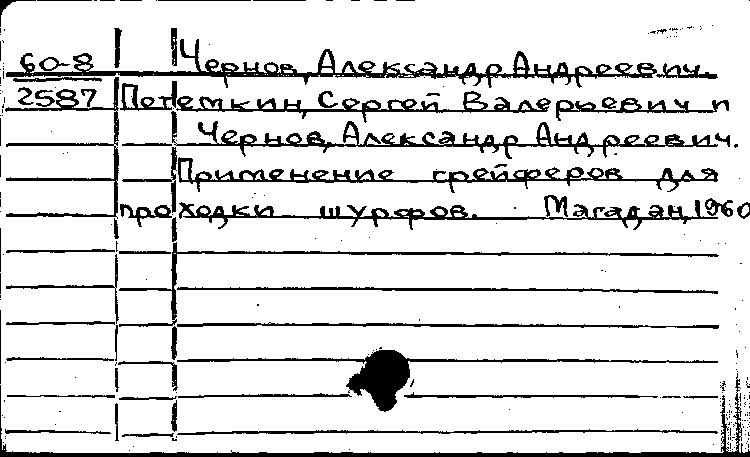 60-8 Чернов, Александр Андреевич.
2587 Потемкин, Сергей Валерьевич и
Чернов, Александр Андреевич.
Применение грейферов для
проходки шурфов. Магадан, 1960